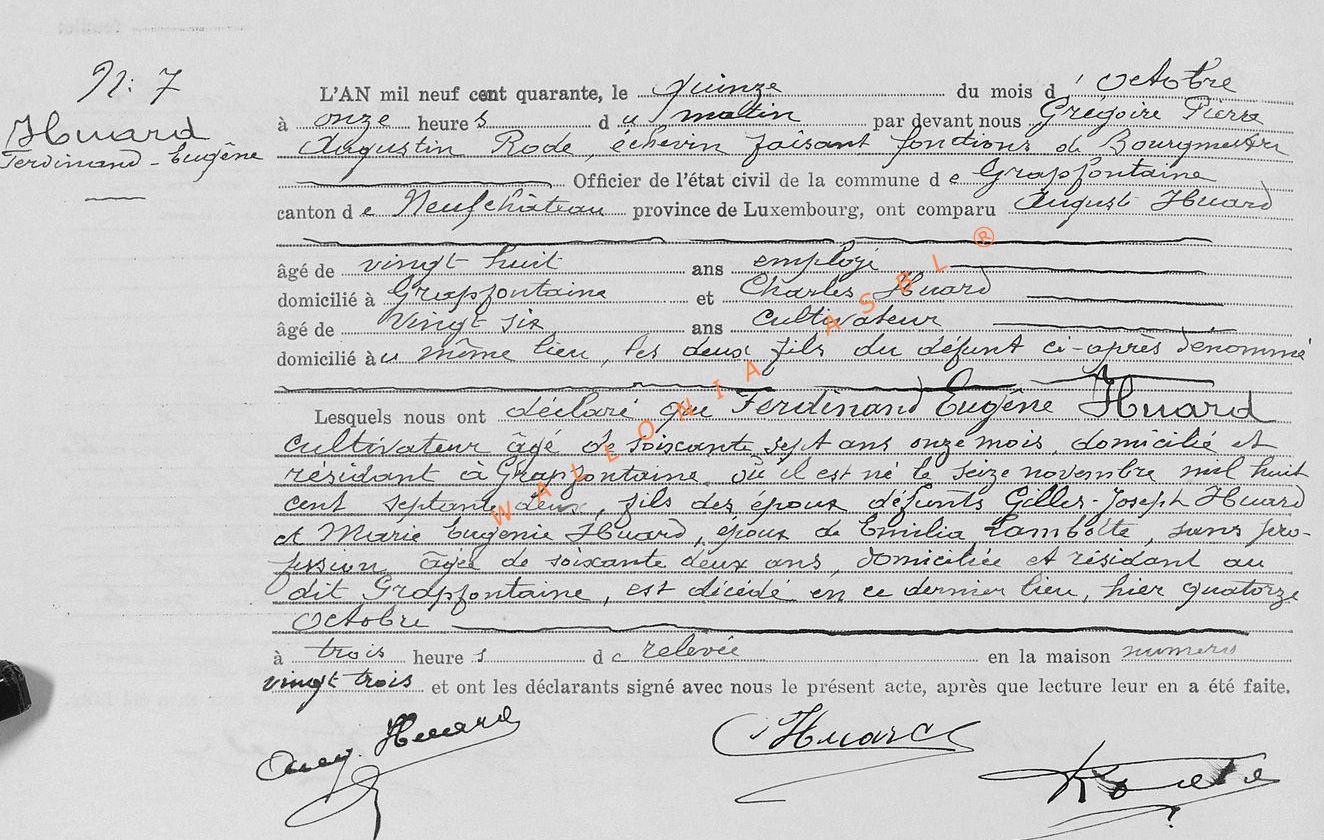 N: 7
Huard
Ferdinand-Eugène
L'AN mil neuf cent quarante, le quinze du mois d' octobre
à onze heures du matin par devant nous Grégoire Pierre
Augustin Rode, échevin faisant fonctions de Bourgmestre
Officier de l'état civil de la commune de Grapfontaine
canton de Neufchâteau province de Luxembourg, ont comparu Auguste Huard
âgé de vingt huit ans employé
domicilié à Grapfontaine et Charles Huard
âgé de vingt six ans cultivateur
domicilié au même lieu, les deux fils du défunt ci-après dénommé
Lesquels nous ont déclaré que Ferdinand Eugène Huard
cultivateur âgé de soixante sept ans onze mois, domicilié et
résidant à Grapfontaine où il est né le seize novembre mil huit
cent septante deux, fils des époux défunts Gilles-Joseph Huard
et Marie Eugénie Huard, époux de Emilia Lambotte, sans pro-
fession, âgée de soixante deux ans, domiciliée et résidant au
dit Grapfontaine, est décédé en ce dernier lieu, hier quatorze
octobre
à trois heures de relevée en la maison numéro
vingt trois et ont les déclarants signé avec nous le présent acte, après que lecture leur en a été faite.
Aug. Huard
Huard
Rode
WALLONIA ASBL ®